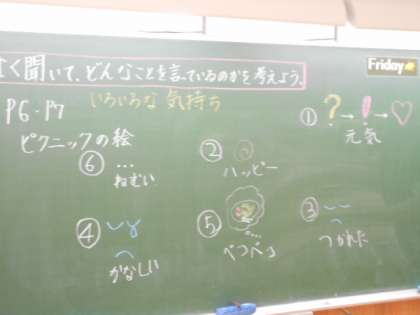 よく聞いて、どんなことを言っているのかを考えよう。
Friday
P6・P7
いろいろな気持ち
ピクニックの絵
① ?→!→♡
元気
② ハッピー
③ つかれた
④ かなしい
⑤ ...
ぺこぺこ
⑥ ...
ねむい